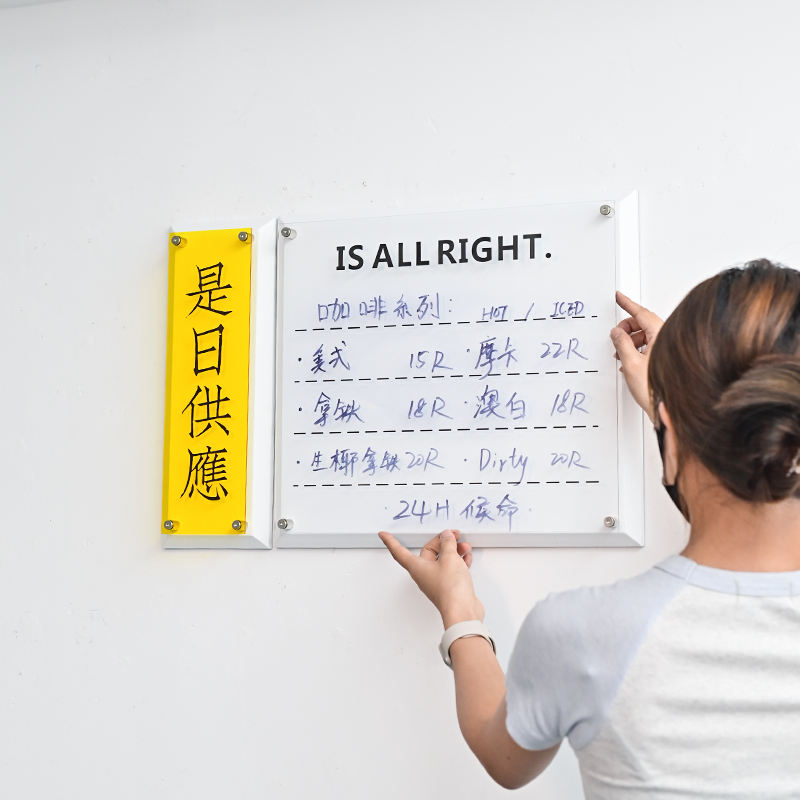 是日供應
IS ALL RIGHT.
咖啡系列: HOT / ICED
·美式 15R ·摩卡 22R
·拿铁 18R ·澳白 18R
·生椰拿铁 20R ·Dirty 20R
·24H 候命·